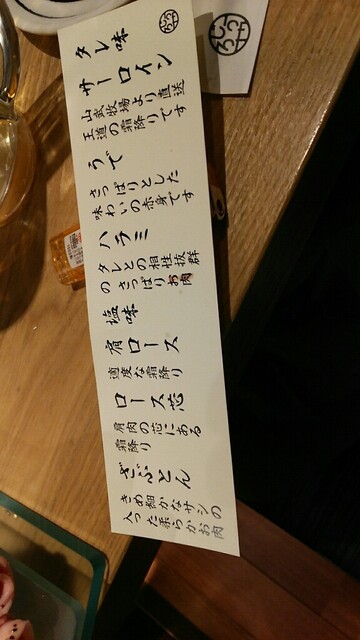 タレ味
サーロイン
山武牧場より直送
王道の霜降りです
うで
さっぱりとした
味わいの赤身です
ハラミ
タレとの相性抜群
のさっぱりお肉
塩味
肩ロース
適度な霜降り
ロース芯
肩肉の芯にある
霜降り
ざぶとん
きめ細かなサシの
入った柔らかお肉